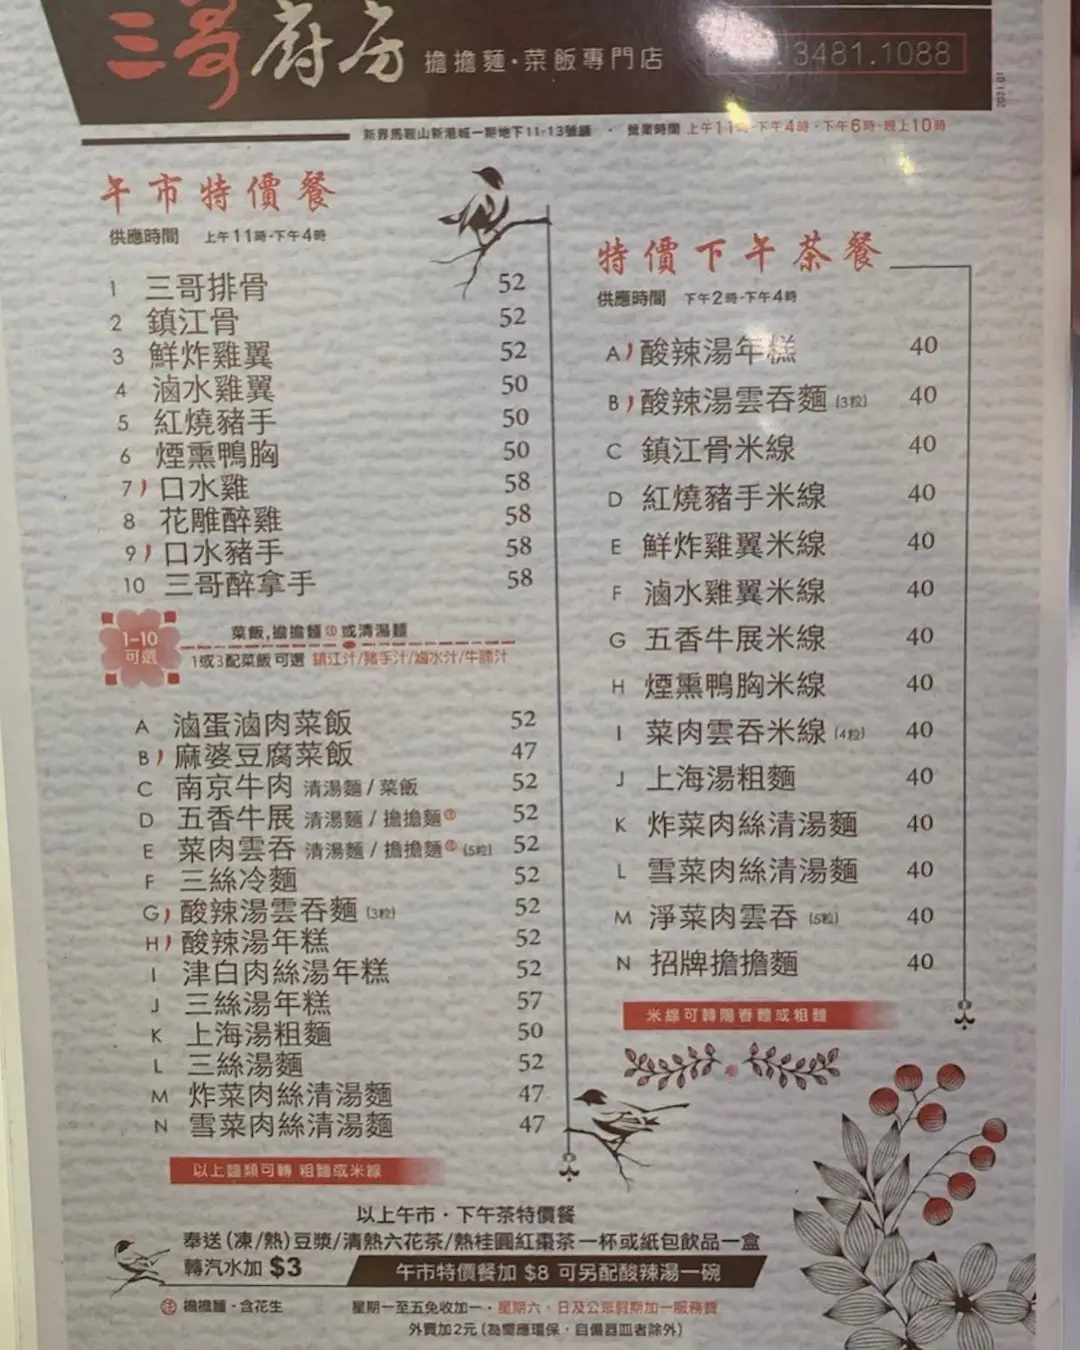 三哥廚房 擔擔麵·菜飯專門店 3481.1088
2021.01
新界馬鞍山新港城一期地下11-13號舖 · 營業時間 上午11時-下午4時·下午6時-晚上10時
午市特價餐
供應時間 上午11時-下午4時
1 三哥排骨 52
2 鎮江骨 52
3 鮮炸雞翼 52
4 滷水雞翼 50
5 紅燒豬手 50
6 煙熏鴨胸 50
7 口水雞 58
8 花雕醉雞 58
9 口水豬手 58
10 三哥醉拿手 58
1-10 可選
菜飯,擔擔麵㊟或清湯麵
1或3配菜飯 可選 鎮江汁/豬手汁/滷水汁/牛腩汁
A 滷蛋滷肉菜飯 52
B 麻婆豆腐菜飯 47
C 南京牛肉 清湯麵/菜飯 52
D 五香牛展 清湯麵/擔擔麵㊟ 52
E 菜肉雲吞 清湯麵/擔擔麵㊟ (5粒) 52
F 三絲冷麵 52
G 酸辣湯雲吞麵 (3粒) 52
H 酸辣湯年糕 52
I 津白肉絲湯年糕 52
J 三絲湯年糕 57
K 上海湯粗麵 50
L 三絲湯麵 52
M 炸菜肉絲清湯麵 47
N 雪菜肉絲清湯麵 47
以上麵類可轉 粗麵或米線
特價下午茶餐
供應時間 下午2時-下午4時
A 酸辣湯年糕 40
B 酸辣湯雲吞麵 (3粒) 40
C 鎮江骨米線 40
D 紅燒豬手米線 40
E 鮮炸雞翼米線 40
F 滷水雞翼米線 40
G 五香牛展米線 40
H 煙熏鴨胸米線 40
I 菜肉雲吞米線 (4粒) 40
J 上海湯粗麵 40
K 炸菜肉絲清湯麵 40
L 雪菜肉絲清湯麵 40
M 淨菜肉雲吞 (5粒) 40
N 招牌擔擔麵 40
米線可轉陽春麵或粗麵
以上午市·下午茶特價餐
奉送(凍/熱)豆漿/清熱六花茶/熱桂圓紅棗茶一杯或紙包飲品一盒
轉汽水加 $3
午市特價餐加 $8 可另配酸辣湯一碗
㊟ 擔擔麵·含花生
星期一至五免收加一·星期六、日及公眾假期加一服務費
外賣加2元(為響應環保·自備器皿者除外)